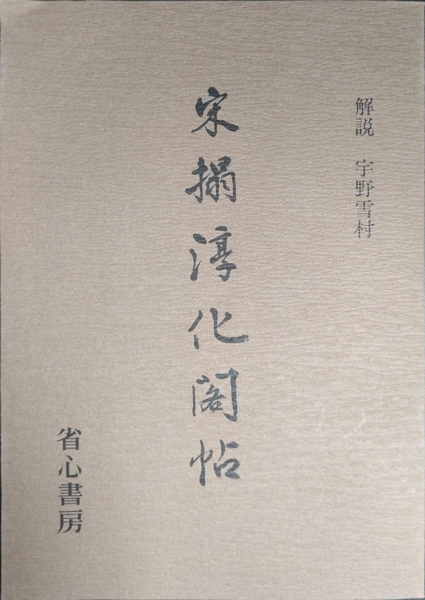 解説 宇野雪村
宋搨淳化閣帖
省心書房